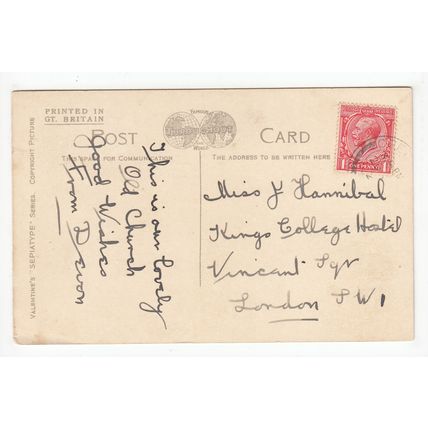 PRINTED IN
GT. BRITAIN
FAMOUS
THROUGHOUT
WORLD
POST CARD
THIS SPACE FOR COMMUNICATION
THE ADDRESS TO BE WRITTEN HERE
VALENTINE'S "SEPIATYPE" SERIES. COPYRIGHT PICTURE
This is our lovely
Old Church
Good Wishes
From D Evon
Miss J Hannibal
Kings College Hostel
Vincent Sqr
London S W 1
1 ONE PENNY 1